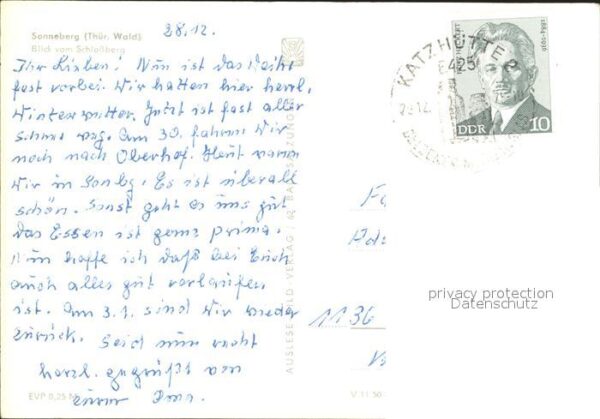 Sonneberg (Thür. Wald)
Blick vom Schloßberg
28.12.
Ihr Lieben! Nun ist das Weih-
fest vorbei. Wir hatten hier herrl.
Winterwetter. Jetzt ist fast aller
Schnee weg. Am 30. fahren wir
noch nach Oberhof. Heut waren
wir in Sonbg. Es ist überall
schön. Sonst geht es uns gut
das Essen ist ganz prima.
Nun hoffe ich daß bei Euch
auch alles gut verlaufen
ist. Am 3.1. sind wir wieder
zurück. Seid nun recht
herzl. gegrüßt von
Eurer Oma.
EVP 0,25 M
V 11 50
AUSLESE-BILD-VERLAG / 62 BAD SALZUNGEN
KATZHÜTTE 2
6425
DDR 10
1884-1936
Fa
1136
privacy protection
Datenschutz